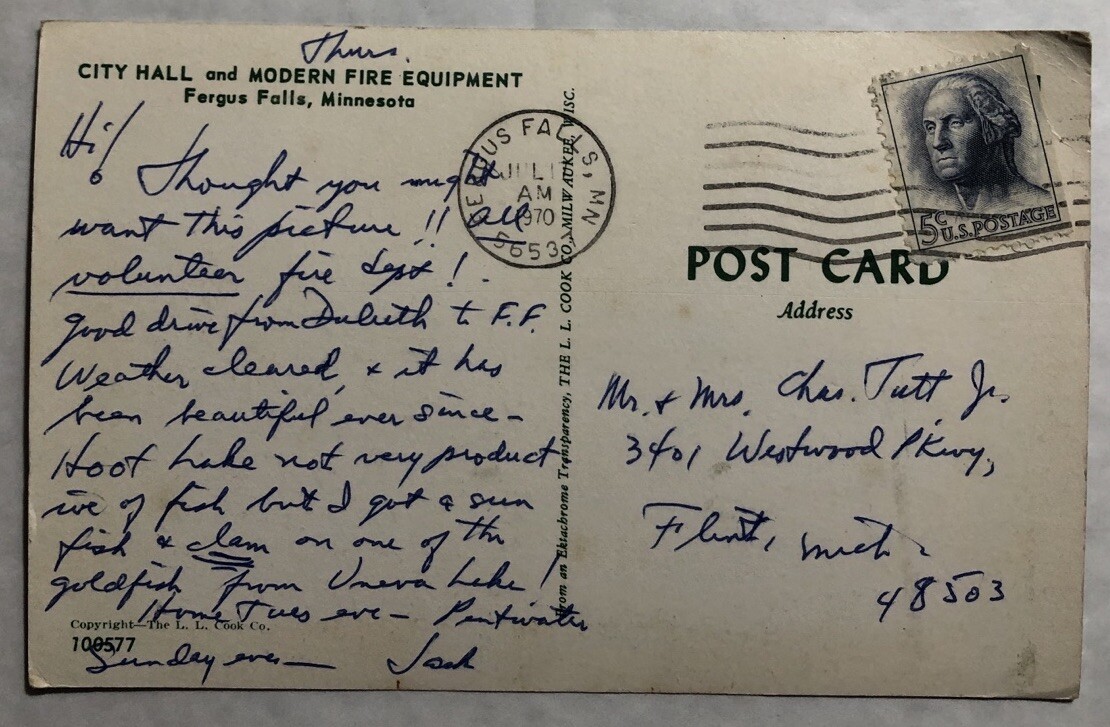 Thurs.
CITY HALL and MODERN FIRE EQUIPMENT
Fergus Falls, Minnesota
Hi!
Thought you might
want this picture!! All
volunteer fire dept!
Good drive from Duluth to F.F.
Weather cleared, & it has
been beautiful ever since -
Hoot Lake not very product
ive of fish but I got a sun
fish & clam on one of the
goldfish from Uneva Lake!
Home Tues eve - Pentwater
Sunday eve —
Copyright—The L. L. Cook Co.
100577
From an Ektachrome Transparency, THE L. L. COOK CO., MILWAUKEE, WISC.
FERGUS FALLS, MN
JUL
AM
1970
5653
5c U.S. POSTAGE
POST CARD
Address
Mr. & Mrs. Chas. Tutt Jr.
3401 Westwood Pkwy,
Flint, Mich
48503